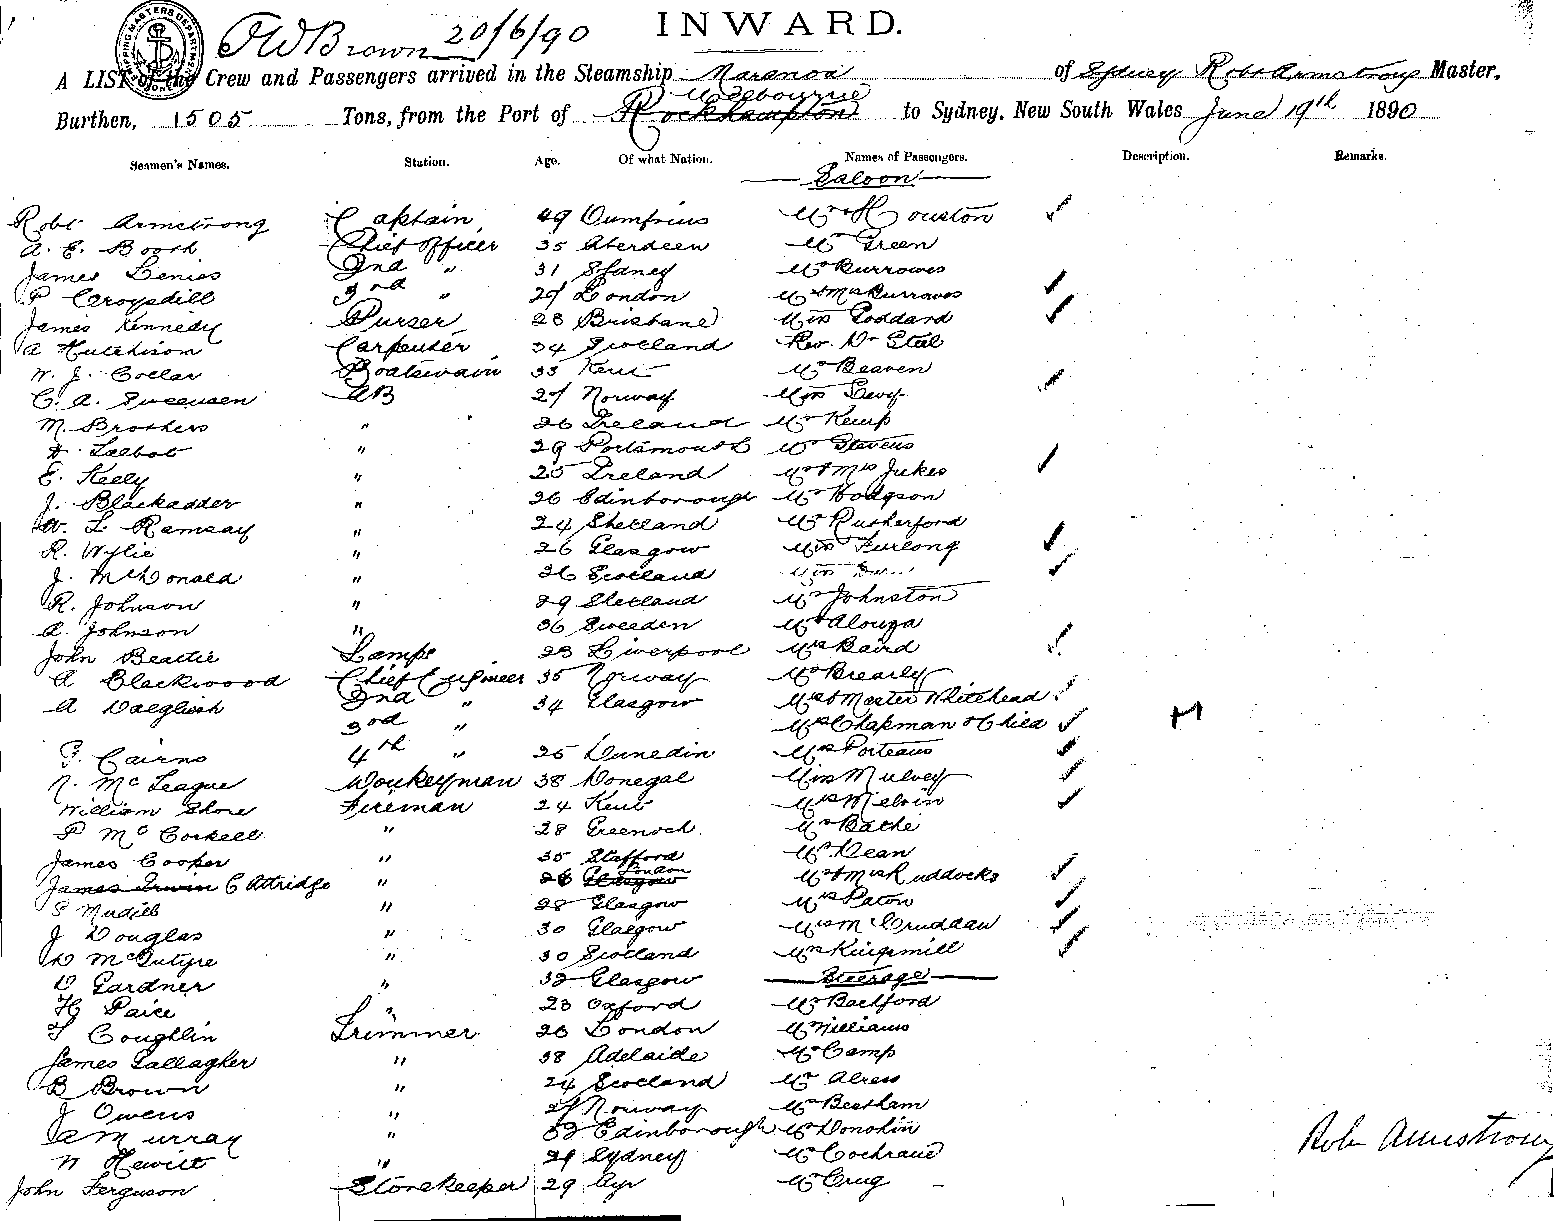 INWARD.
FWBrown 20/6/90
A LIST of the Crew and Passengers arrived in the Steamship Maranoa of Sydney Robt Armstrong Master,
Melbourne
Burthen, 1505 Tons, from the Port of Rockhampton to Sydney, New South Wales June 19th 1890
Seamen's Names. Station. Age. Of what Nation. Names of Passengers. Description. Remarks.
Saloon
Robt Armstrong Captain 49 Dumfries Mr Houston
A. E. Booth Chief Officer 35 Aberdeen Mr Green
James 2nd " 31 Sydney Mr Burrowes
P Croysdill 3rd " London Mr & Mrs Burrows
James Kennedy Purser 28 Brisbane Miss Goddard
A Hutchison Carpenter 34 Scotland Rev. Dr Steel
W. J. Collar Boatswain 33 Kent Mr Beaven
C. A. Sweensen AB 27 Norway Miss Levy
M. Brothers " 26 Ireland Mr Kemp
Talbot " 29 Portsmouth Mr Stevens
E. Keely " 25 Ireland Mr & Mrs Jukes
J. Blackadder " 26 Edinborough Mr Hodgson
W. L. Ramsay " 24 Shetland Mr Rutherford
R. Wylie " 26 Glasgow Miss Furlong
J. McDonald " 36 Scotland Miss
R. Johnson " 29 Shetland Mr Johnston
A. Johnson " 36 Sweeden Mr Alouga
John Beattie Lamps 23 Liverpool Mrs Baird
A Blackwood Chief Engineer 35 Norway Mr Brearly
A Dalgliesh 2nd " 34 Glasgow Mrs & Master Whitehead
3rd " Mrs Chapman & Child
Cairns 4th " 25 Dunedin Mrs Porteaus
N. McLeague Donkeyman 38 Donegal Miss Mulvey
William Shore Fireman 24 Kent Mrs Melvin
P McCorkell " 28 Greenock Mr Bathe
James Cooper " 35 Stafford Mr Dean
James Irwin C Attridge " 26 Glasgow London Mr & Mrs Ruddocks
S " 28 Glasgow Mrs Paton
J Douglas " 30 Glasgow Mrs McCruddan
D McIntyre " 30 Scotland Mrs Kingsmill
D Gardner " 32 Glasgow Steerage
H Paice " 23 Oxford Mr Batford
T Coughlin Trimmer 26 London Mr Williams
James Gallagher " 38 Adelaide Mr Camp
B Brown " 24 Scotland Mr Alress
J Owens " 27 Norway Mr Beetham
A Murray " 32 Edinborough Mr Donohin
W Hewitt " 21 Sydney Mr Cochrane
John Ferguson Storekeeper 29 Ayr Mr Crug
Robt Armstrong